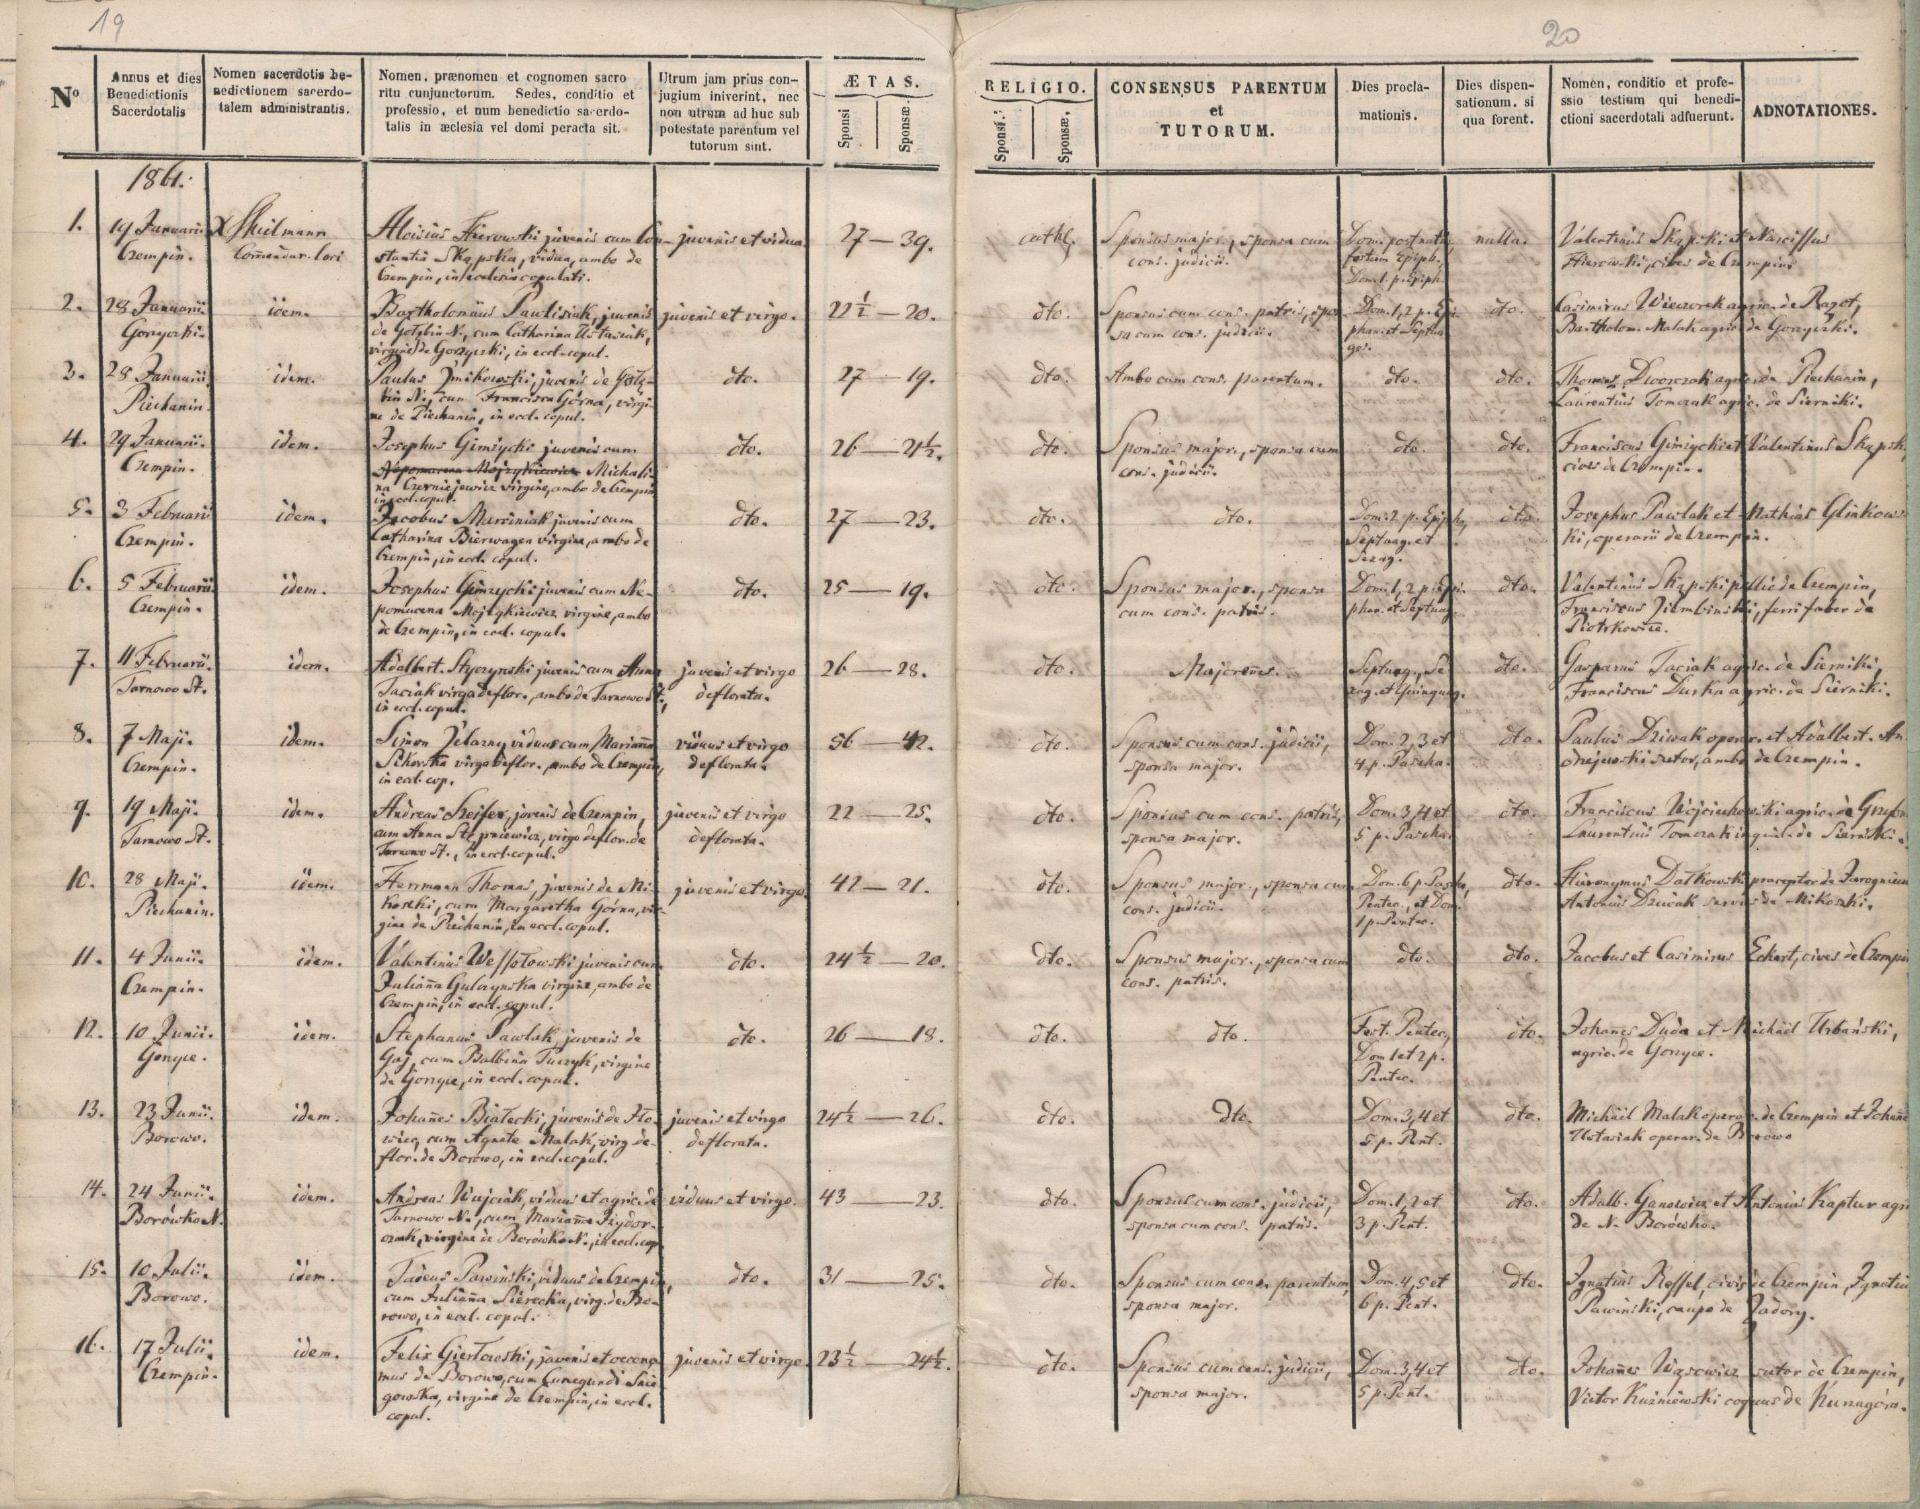 19
20
Nº
Annus et dies Benedictionis Sacerdotalis
Nomen sacerdotis benedictionem sacerdotalem administrantis.
Nomen, prænomen et cognomen sacro
ritu cunjunctorum. Sedes, conditio et
professio, et num benedictio sacerdo-
talis in æclesia vel domi peracta sit.
Utrum jam prius con-
jugium iniverint, nec
non utrum ad huc sub
potestate parentum vel
tutorum sint.
ÆTAS.
Sponsi
Sponsæ
RELIGIO.
Sponsi,
Sponsæ,
CONSENSUS PARENTUM
et
TUTORUM.
Dies procla-
mationis.
Dies dispen-
sationum, si
qua forent.
Nomen, conditio et profe-
ssio testium qui benedi-
ctioni sacerdotali adfuerunt.
ADNOTATIONES.
1861.
1. 19 Januarii Czempin. Comendar. loci
Aloisius Hierowski juvenis cum Con-
stantia Skąpska, vidua, ambo de
Czempin, in ecclesia copulati.
juvenis et vidua
27 — 39.
cathl.
Sponsus major., sponsa cum
cons. judicii.
nulla.
Valentinus Skąpski et Narcissus
Hierowski, cives de Czempin
2. 28 Januarii Gorzyczki. idem.
Bartholomäus Pawlisiak, juvenis
de Gołębin N., cum Catharina Ustasiak,
virgine de Gorzyczki, in eccl. copul.
juvenis et virgo.
22½ — 20.
dto.
Sponsus cum cons. patris, spon-
sa cum cons. judicii.
Dom. 1, 2 p. Epi-
phan. et Septua-
ges.
dto.
Casimirus Wieczorek agric. de Razot,
Bartholom. Malak agric. de Gorzyczki.
3. 28 Januarii. Piechanin. idem.
Paulus Żmikowski, juvenis de Gołę-
bin N., cum Francisca Górna, virgi-
ne de Piechanin, in eccl. copul.
dto.
27 — 19.
dto.
Ambo cum cons. parentum.
dto.
dto.
Thomas Dworczak agric. de Piechanin,
Laurentius Tomczak agric. de Sierniki.
4. 29 Januarii. Czempin. idem.
Josephus Gimżycki juvenis cum
Nepomucena Mojzykiewicz Michali-
na Czerniejewicz virgine, ambo de Czempin
in eccl. copul.
dto.
26 — 21½.
dto.
Sponsus major., sponsa cum
cons. judicii.
dto.
dto.
Franciscus Gimżycki et Valentinus Skąpski,
cives de Czempin.
5. 3 Februarii Czempin. idem.
Jacobus Marciniak juvenis cum
Catharina Bierwagen virgine, ambo de
Czempin, in eccl. copul.
dto.
27 — 23.
dto.
dto.
Dom. 2 p. Epiph.,
Septuag. et
Sexag.
dto.
Josephus Pawlak et Mathias Glinkows-
ki, operarii de Czempin.
6. 5 Februarii Czempin. idem.
Josephus Gimżycki juvenis cum Ne-
pomucena Mojzykiewicz virgine, ambo
de Czempin, in eccl. copul.
dto.
25 — 19.
dto.
Sponsus major., sponsa
cum cons. patris.
Dom. 1, 2 p. Epi-
phan. et Septuag.
dto.
Valentinus Skąpski pellio de Czempin,
Franciscus Ziembinski, ferri faber de
Piotrkowice.
7. 11 Februarii. Tarnowo St. idem.
Adalbert. Styczynski juvenis cum Anna
Taciak virgo deflor., ambo de Tarnowo St.,
in eccl. copul.
juvenis et virgo
deflorata.
26 — 28.
dto.
Majorenes.
Septuag., Se-
xag. et Quinquag.
dto.
Gasparus Taciak agric. de Sierniki,
Franciscus Duska agric. de Sierniki.
8. 7 Maji. Czempin. idem.
Simon Żelazny viduus cum Marianna
Sikorska virgo deflor., ambo de Czempin,
in eccl. cop.
viduus et virgo
deflorata.
56 — 42.
dto.
Sponsus cum cons. judicii,
sponsa major.
Dom. 2, 3 et
4 p. Pascha.
dto.
Paulus Dziwak operar. et Adalbert. An-
drzejewski sutor, ambo de Czempin.
9. 19 Maji. Tarnowo St. idem.
Andreas Szeifer, juvenis de Czempin,
cum Anna Stępniewicz, virgo deflor. de
Tarnowo St., in eccl. copul.
juvenis et virgo
deflorata.
22 — 25.
dto.
Sponsus cum cons. patris,
sponsa major.
Dom. 3, 4 et
5 p. Pascha.
dto.
Franciscus Wojciechowski agric. de
Laurentius Tomczak inquil. de Sierniki.
10. 28 Maji. Piechanin. idem.
Herrmann Thomas, juvenis de Mi-
koszki, cum Margaretha Górna, vir-
gine de Piechanin, in eccl. copul.
juvenis et virgo.
42 — 21.
dto.
Sponsus major., sponsa cum
cons. judicii.
Dom. 6 p. Pascha,
Pentec., et Dom.
1 p. Pentec.
dto.
Hieronymus Datkowski praeceptor de
Antonius Dziwak servus de Mikoszki.
11. 4 Junii. Czempin. idem.
Valentinus Wessołowski juvenis cum
Julianna Gulczynska virgine, ambo de
Czempin, in eccl. copul.
dto.
24½ — 20.
dto.
Sponsus major., sponsa cum
cons. patris.
dto.
dto.
Jacobus et Casimirus Eckert, cives de Czempin
12. 10 Junii. Gorzyce. idem.
Stephanus Pawlak, juvenis de
Gaj, cum Balbina Tuczyk, virgine
de Gorzyce, in eccl. copul.
dto.
26 — 18.
dto.
dto.
Fest. Pentec.,
Dom 1 et 2 p.
Pentec.
dto.
Johanes Duda et Michäel Urbański,
agric. de Gorzyce.
13. 23 Junii. Borowo. idem.
Johañes Białecki, juvenis de Iło-
wiec, cum Agnete Malak, virg. de-
flor. de Borowo, in eccl. copul.
juvenis et virgo
deflorata.
24½ — 26.
dto.
Dto.
Dom. 3, 4 et
5 p. Pent.
dto.
Michäel Malak operar. de Czempin et Johañes
Ustasiak operar. de Borowo
14. 24 Junii. Borówko N. idem.
Andreas Wujciak, viduus et agric. de
Tarnowo N., cum Marianna Izydor-
czak, virgine de Borówko N., in eccl. cop.
viduus et virgo.
43 — 23.
dto.
Sponsus cum cons. judicii,
sponsa cum cons. patris.
Dom. 1, 2 et
3 p. Pent.
dto.
Adalb. Ganowicz et Antonius Kaptur agric.
de N. Borówko.
15. 10 Julii. Borowo. idem.
Tadeus Pawinski, viduus de Czempin,
cum Julianna Sierecka, virg. de Bo-
rowo, in eccl. copul.
dto.
31 — 25.
dto.
Sponsus cum cons. parentum,
sponsa major.
Dom. 4, 5 et
6 p. Pent.
dto.
Ignatius Ressel, civis de Czempin, Ignatius
Pawinski, caupo de Zadory.
16. 17 Julii. Czempin. idem.
Felix Giertowski, juvenis et oecono-
mus de Borowo, cum Cunegundi Śnie-
gowska, virgine de Czempin, in eccl.
copul.
juvenis et virgo.
23½ — 24½.
dto.
Sponsus cum cons. judicii,
sponsa major.
Dom. 3, 4 et
5 p. Pent.
dto.
Johañes Wąsowicz sutor de Czempin,
Victor Kuzniewski coquus de Kunagóra.